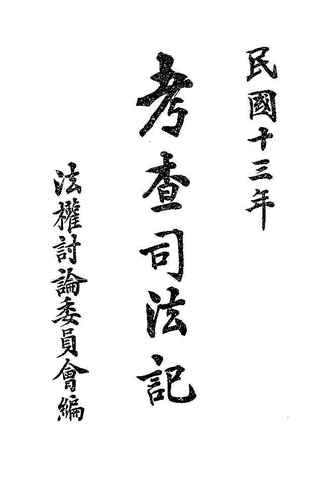 民國十三年
考查司法記
法權討論委員會編